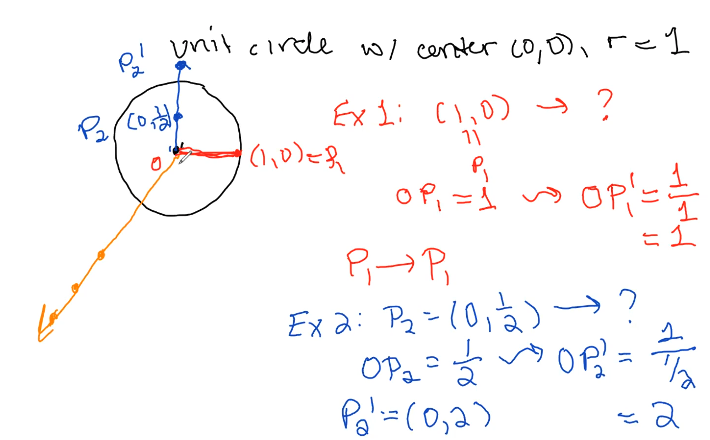 unit circle w/ center (0,0), r = 1
P₂'
P₂ (0,1/2)
O
(1,0) = P₁
Ex 1: (1,0) → ?
=
P₁
OP₁ = 1 ⇝ OP₁' = 1/1
= 1
P₁ → P₁
Ex 2: P₂ = (0, 1/2) → ?
OP₂ = 1/2 ⇝ OP₂' = 1/(1/2)
P₂' = (0,2) = 2